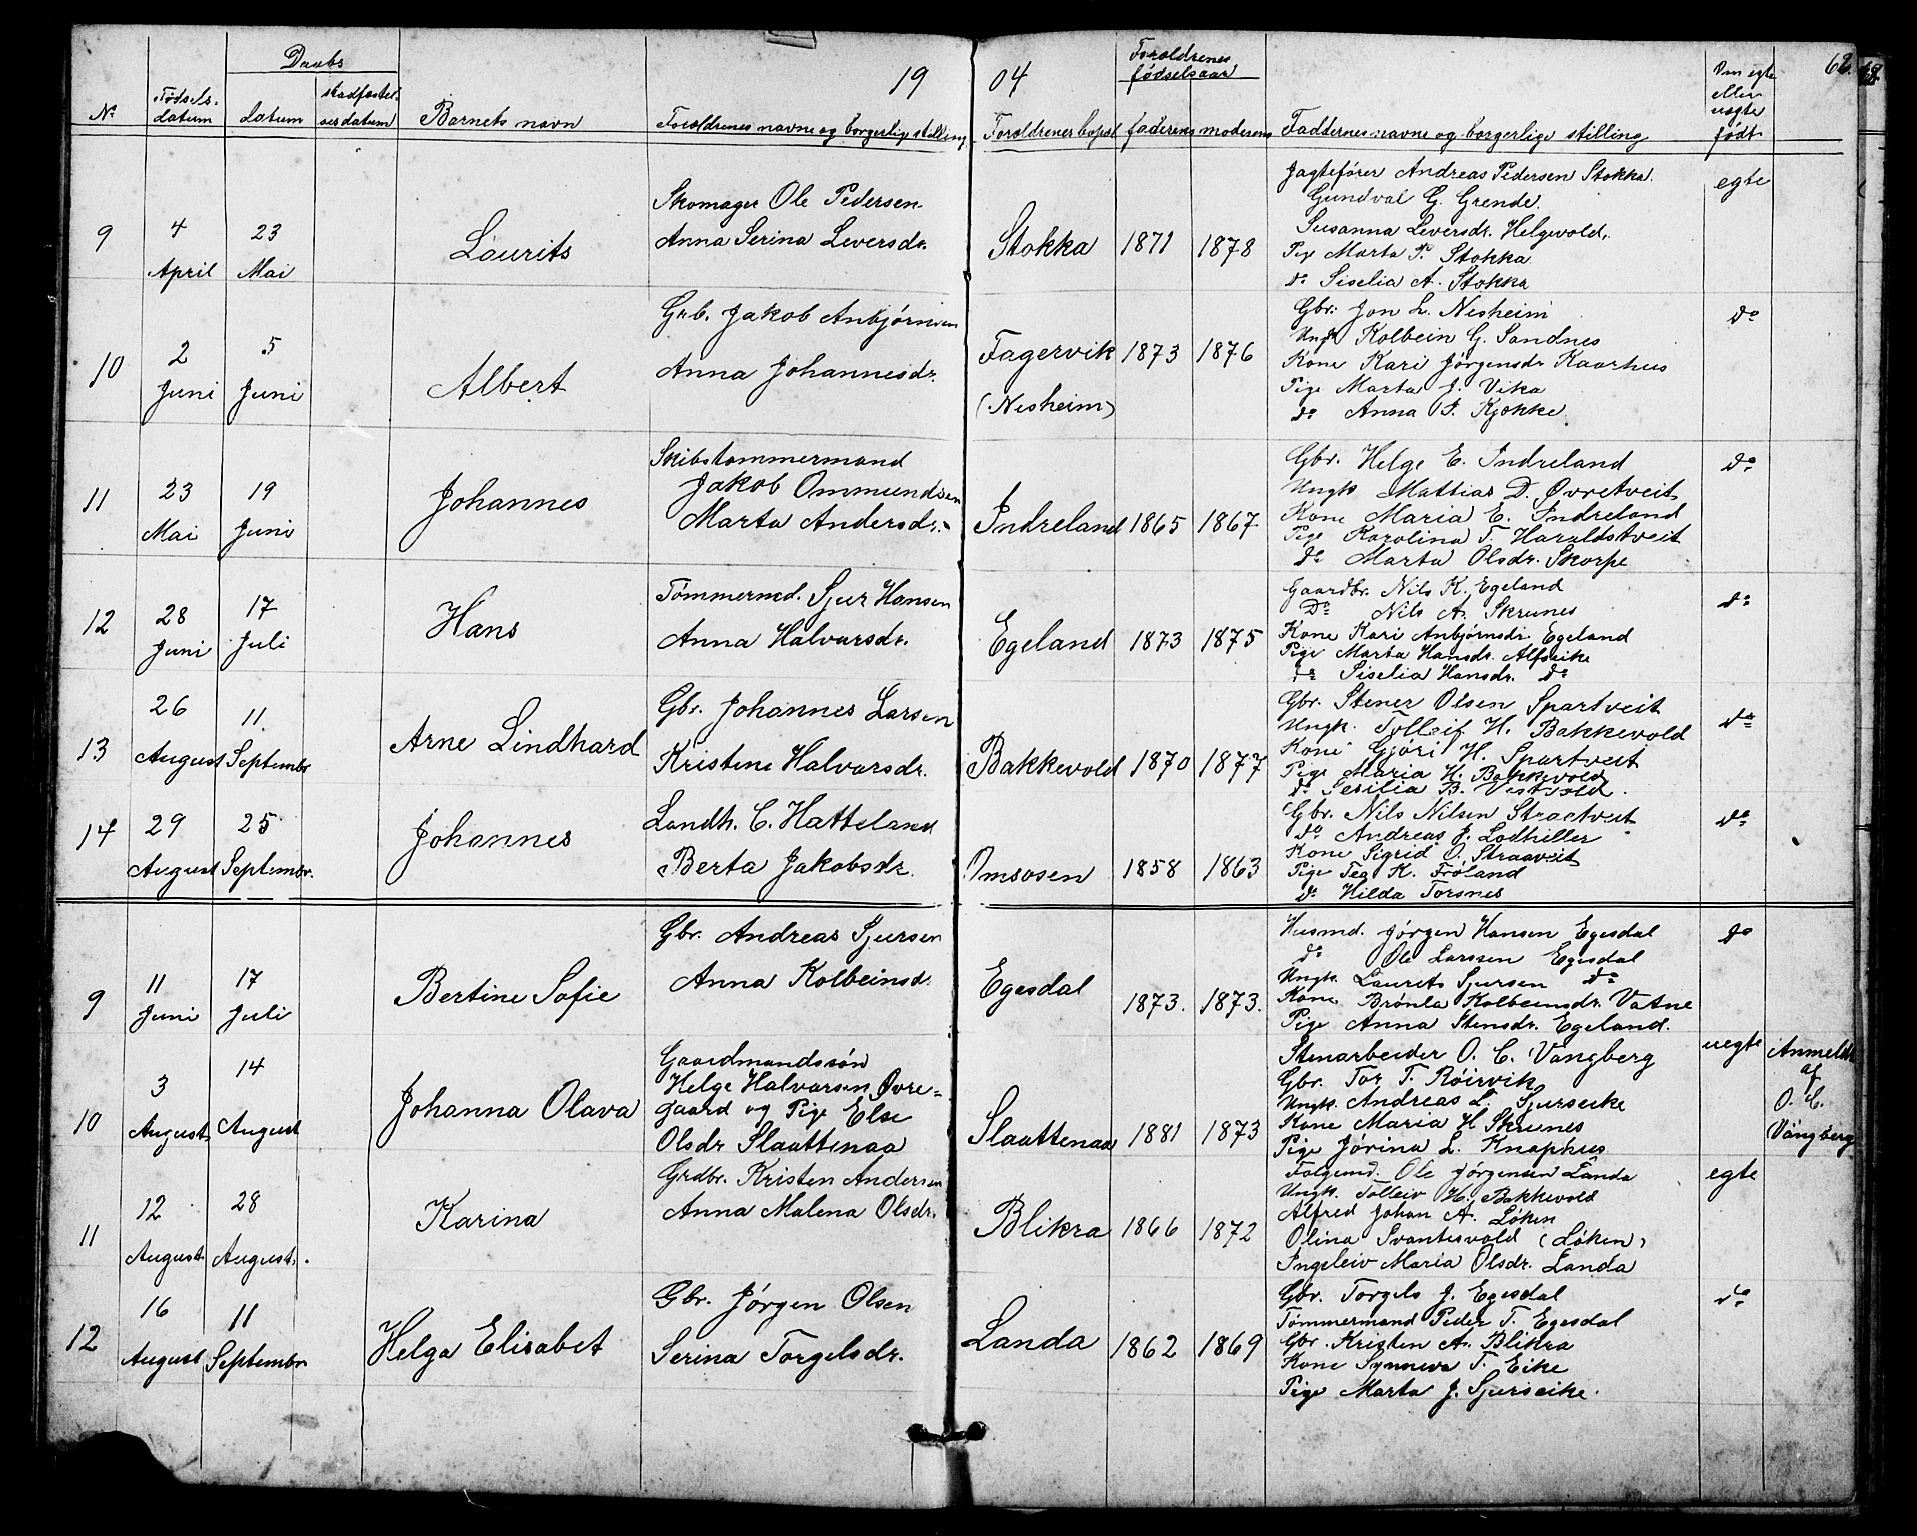 19 04
62.
Daabs
Forældrenes
fødselsaar
Nr. Fødsels- datum
datum
stadfæstel- ses datum
Barnets navn
Forældrenes navne og borgerlig stilling
Forældrenes bopæl
faderens moderens
Faddernes navne og borgerlige stilling
Om egte
eller
uegte
født
9
4 April
23 Mai
Laurits
Skomager Ole Pedersen
Anna Serina Leversdr.
Stokka 1871 1878
Jagtefører Andreas Pedersen Stokka.
Gundval G. Grende.
Susanna Leversdr. Helgevold.
Pige Marta P. Stokka
do Siselia A. Stokka
egte
10
2 Juni
5 Juni
Albert
Grb. Jakob Anbjørnsen
Anna Johannesdr.
Fagervik 1873 1876
(Nesheim)
Gbr. Jon L. Nesheim
Ungk Kolbein G. Sandnes
Kone Kari Jørgensdr Kaarhus
Pige Marta J. Vika
do Anna I. Kjokke.
do
11
23 Mai
19 Juni
Johannes
Skibstømmermand
Jakob Ommundsen
Marta Andersdr.
Indreland 1865 1867
Gbr. Helge E. Indreland
Ungk Mattias D. Øvretveit
Kone Maria E. Indreland
Pige Karolina T. Haraldstveit
do Marta Olsdr. Skorpe
do
12
28 Juni
17 Juli
Hans
Tømmermd. Sjur Hansen
Anna Halvarsdr.
Egeland 1873 1875
Gaardbr. Nils K. Egeland
Do Nils A. Skrunes
Kone Kari Anbjørnsdr. Egeland
Pige Marta Hansdr. Alfseike
do Siselia Hansdr. do
do
13
26 August
11 Septembr
Arne Lindhard
Gbr. Johannes Larsen
Kristene Halvarsdr.
Bakkevold 1870 1877
Gbr. Stener Olsen Spartveit
Ungk. Tolleif H. Bakkevold
Kone Gjøri H. Spartveit
Pige Maria H. Bakkevold
do Sesilia B. Vestvold.
do
14
29 August
25 Septembr.
Johannes
Landh. C. Hatteland
Berta Jakobsdr.
Omsosen 1858 1863
Gbr. Nils Nilsen Straatveit
do Andreas J. Lodhiller
Kone Sigrid O. Straaveit
Pige Tea K. Frøland
do Hilda Torsnes
do
9
11 Juni
17 Juli
Bertine Sofie
Gbr. Andreas Sjursen
Anna Kolbeinsd.
Egesdal 1873. 1873.
Husmd. Jørgen Hansen Egesdal
do Ole Larssen Egesdal
Ungk. Laurits Sjursen do
Kone Brønla Kolbeinsdr. Vatne
Pige Anna Stensdr. Egeland.
do
10
3 August
14 August
Johanna Olava
Gaardmandssøn
Helge Halvarsen Øvre-
gaard og Pige Else
Olsdr Slaattenaa
Slaattenaa 1881 1873
Stenarbeider O. C. Vangberg
Gbr. Tor T. Røirvik
Ungk. Andreas L. Sjurseike
Kone Maria H Skrunes
Pige Jørina L. Knaphus
uegte
Anmeldt
af
O. C.
Vangberg
11
12 August
28 August.
Karina
Grdbr. Kristen Andersen
Anna Malena Olsdr.
Blikra 1866 1872
Folgemd. Ole Jørgensen Landa
Ungk. Tolleiv H. Bakkevold
Alfred Johan A. Løken
Olina Svantesvold (Løken)
Ingeleiv Maria Olsdr. Landa
egte
12
16 August
11 Septembr
Helga Elisabet
Gbr. Jørgen Olsen
Serina Torgelsdr.
Landa 1862 1869
Gbr. Torgels J. Egesdal
Tømmermand Peder T. Egesdal
Gbr. Kristen A. Blikra
Kone Synneva T. Eike
Pige Marta J. Sjurseike.
do